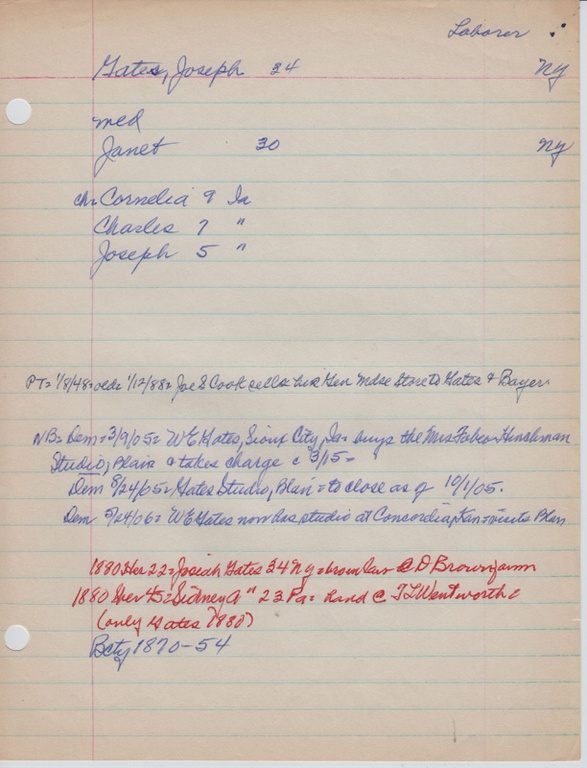 Laborer
Gates, Joseph 34 NY
med
Janet 30 NY
ch. Cornelia 9 Ia
Charles 7 "
Joseph 5 "
PT= 1/8/48= olde 1/12/88= Joe S Cook sells his Gen Mdse Store to Gates & Bayer
NB= Dem= 3/9/05= W E Gates, Sioux City, Ia= buys the Mrs Hinchman
Studio, Plain & takes charge c 3/15=
Dem 8/24/05= Gates Studio, Plain= to close as of 10/1/05.
Dem 5/24/06= W E Gates now has studio at Concordia, Kan= visits Plain
1880 Her 22= Josiah Gates 34 NY= @ D Brown farm
1880 Her 45= Sidney A " 23 Pa= hand @ T L Wentworth
(only Gates 1880)
Bcty 1870-54